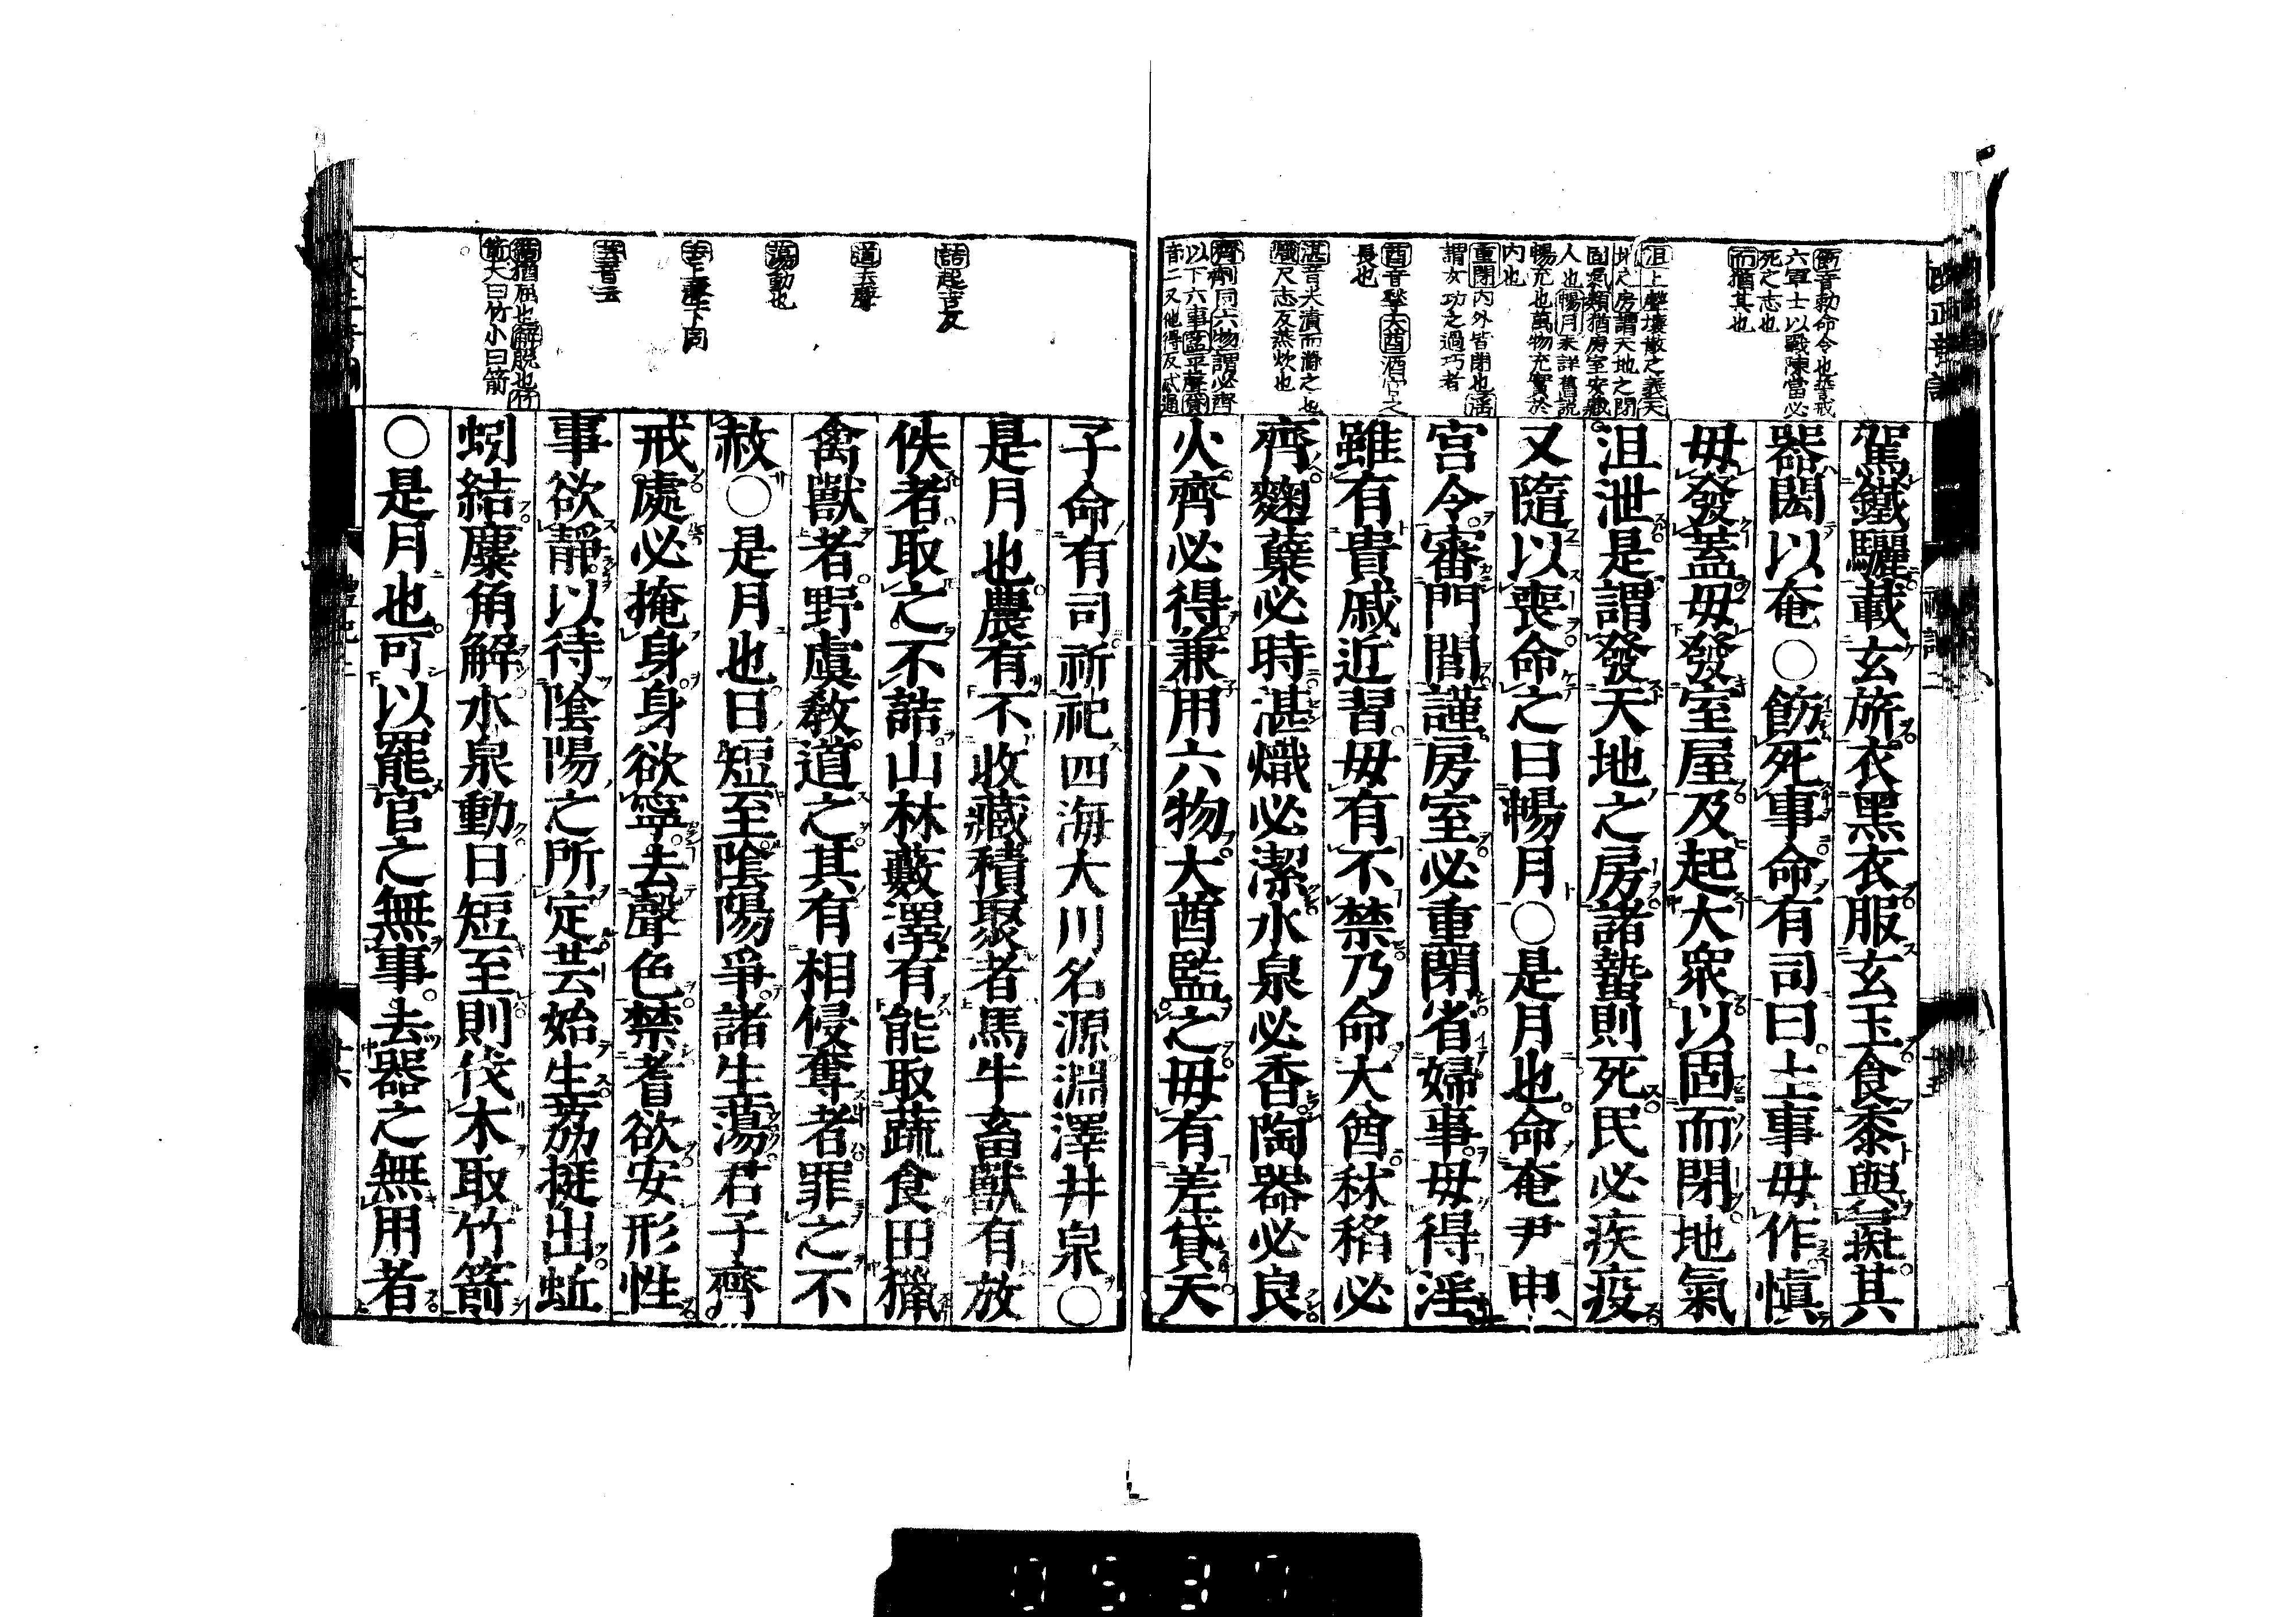 駕鐵驪載玄旂衣黑衣服玄玉食黍與彘其
器閎以奄○飭死事命有司曰土事毋作愼
毋發蓋毋發室屋及起大衆以固而閉地氣
沮泄是謂發天地之房諸蟄則死民必疾疫
又隨以喪命之曰暢月○是月也命奄尹申
宮令審門閭謹房室必重閉省婦事毋得淫
雖有貴戚近習毋有不禁乃命大酋秫稻必
齊麴蘗必時湛熾必潔水泉必香陶器必良
火齊必得兼用六物大酋監之毋有差貸天
子命有司祈祀四海大川名源淵澤井泉○
是月也農有不收藏積聚者馬牛畜獸有放
佚者取之不詰山林藪澤有能取蔬食田獵
禽獸者野虞敎道之其有相侵奪者罪之不
赦○是月也日短至陰陽爭諸生蕩君子齊
戒處必掩身身欲寧去聲色禁耆欲安形性
事欲靜以待陰陽之所定芸始生荔挺出蚯
蚓結麋角解水泉動日短至則伐木取竹箭
○是月也可以罷官之無事去器之無用者
飭音勑命令也誓戒
六軍士以戰陳當必
死之志也
而猶其也
沮上聲壞散之義天
地之房謂天地之閉
固氣類猶房室安藏
人也暢月未詳舊説
暢充也萬物充實於
内也
重閉内外皆閉也淫
謂女功之過巧者
酋音揫大酋酒官之
長也
湛音尖漬而滌之也
熾尺志反蒸炊也
齊劑同六物謂必齊
以下六事監平聲貸
音二又他得反忒通
詰起吉反
道去聲
蕩動也
去上聲下同
芸音云
結猶屈也解脱也竹
箭大曰竹小曰箭